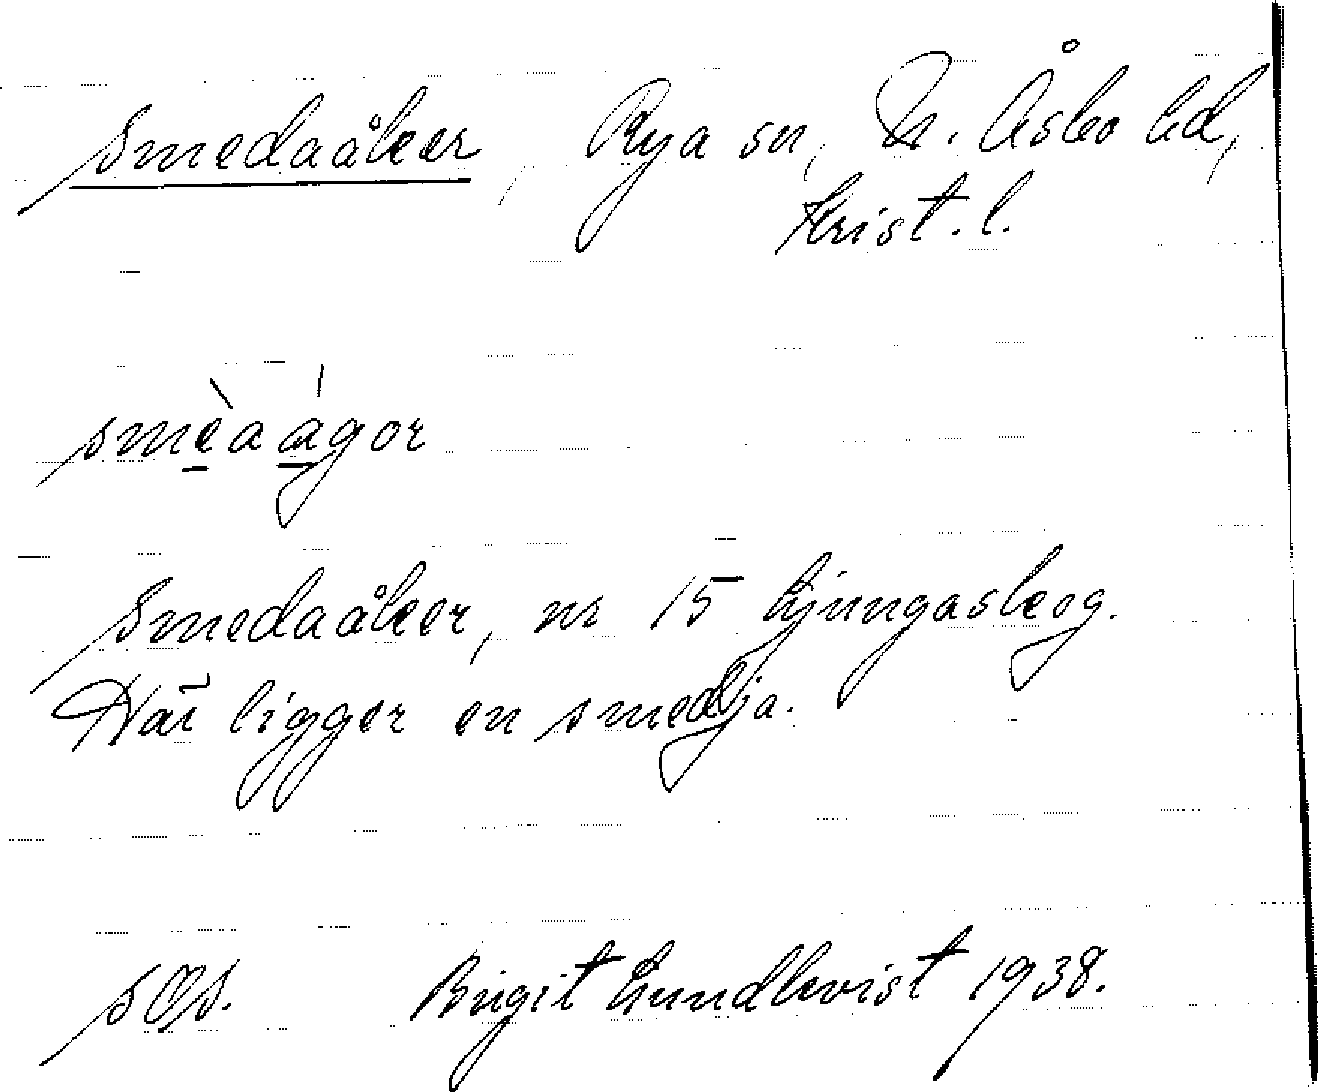 Smedaåker, Rya sn, N. Åsbo hd,
Krist. l.
smèaágor
Smedaåker, nr 15 Ljungaskog.
Här ligger en smedja.
sOs. Birgit Lundkvist 1938.